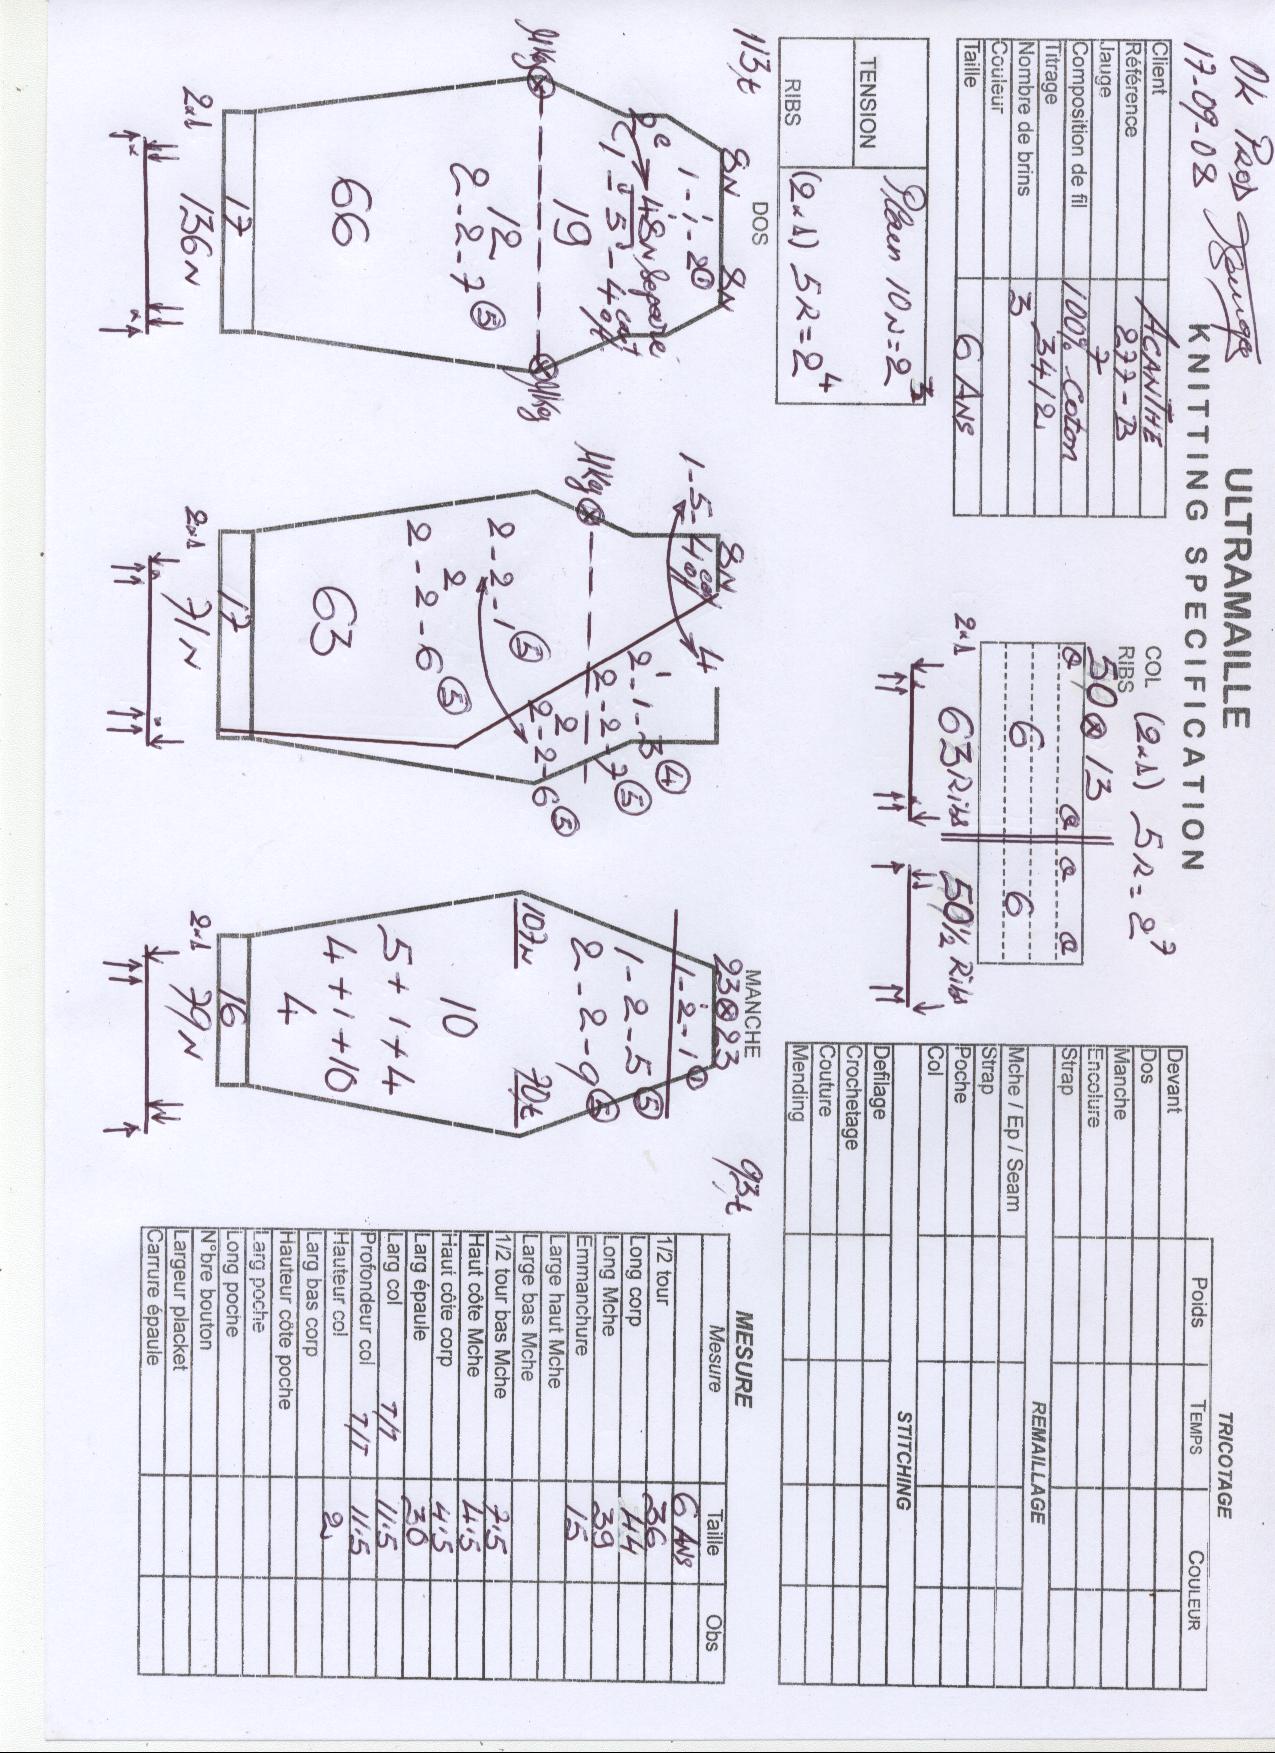 OK PROD
17-09-08
ULTRAMAILLE
KNITTING SPECIFICATION
Client ACANTHE
Référence 277-B
Jauge 7
Composition de fil 100% Coton
Titrage 34/2
Nombre de brins 3
Couleur
Taille 6 ANS
TENSION Plain 10 N = 2 3
RIBS (2x1) 5R = 2 4
COL (2x1) 5R = 2 7
RIBS
50 ⊗ 13
6 6
2x1 63 Ribs 50½ Ribs
TRICOTAGE
Poids TEMPS COULEUR
Devant
Dos
Manche
Encolure
Strap
REMAILLAGE
Mche / Ep / Seam
Strap
Poche
Col
STITCHING
Defilage
Crochetage
Couture
Mending
113t DOS
8N 8N
1-1-2 ①
2c 48N Separe
1-5-4
19
MKg MKg
12
2-2-7 ⑤
66
17
2x1 136N
8N
1-5-4 4
2-1-3 ④
2-2-7 ⑤
MKg
2
2-2-6 ⑤
2-2-1 ⑤
2
2-2-6 ⑤
63
17
2x1 71N
MANCHE 93t
23 ⊗ 23
1-2-1 ①
1-2-5 ⑤
2-2-9 ⑤
107N 70t
10
5+1+4
4+1+10
4
16
2x1 79N
MESURE
Mesure Taille Obs
6 ANS
1/2 tour 36
Long corp 44
Long Mche 39
Emmanchure 15
Large haut Mche
Large bas Mche
1/2 tour bas Mche 7.5
Haut côte Mche 4.5
Haut côte corp 4.5
Larg épaule 30
Larg col T/T 11.5
Profondeur col T/T 11.5
Hauteur col 2
Larg bas corp
Hauteur côte poche
Larg poche
Long poche
N°bre bouton
Largeur placket
Carrure épaule